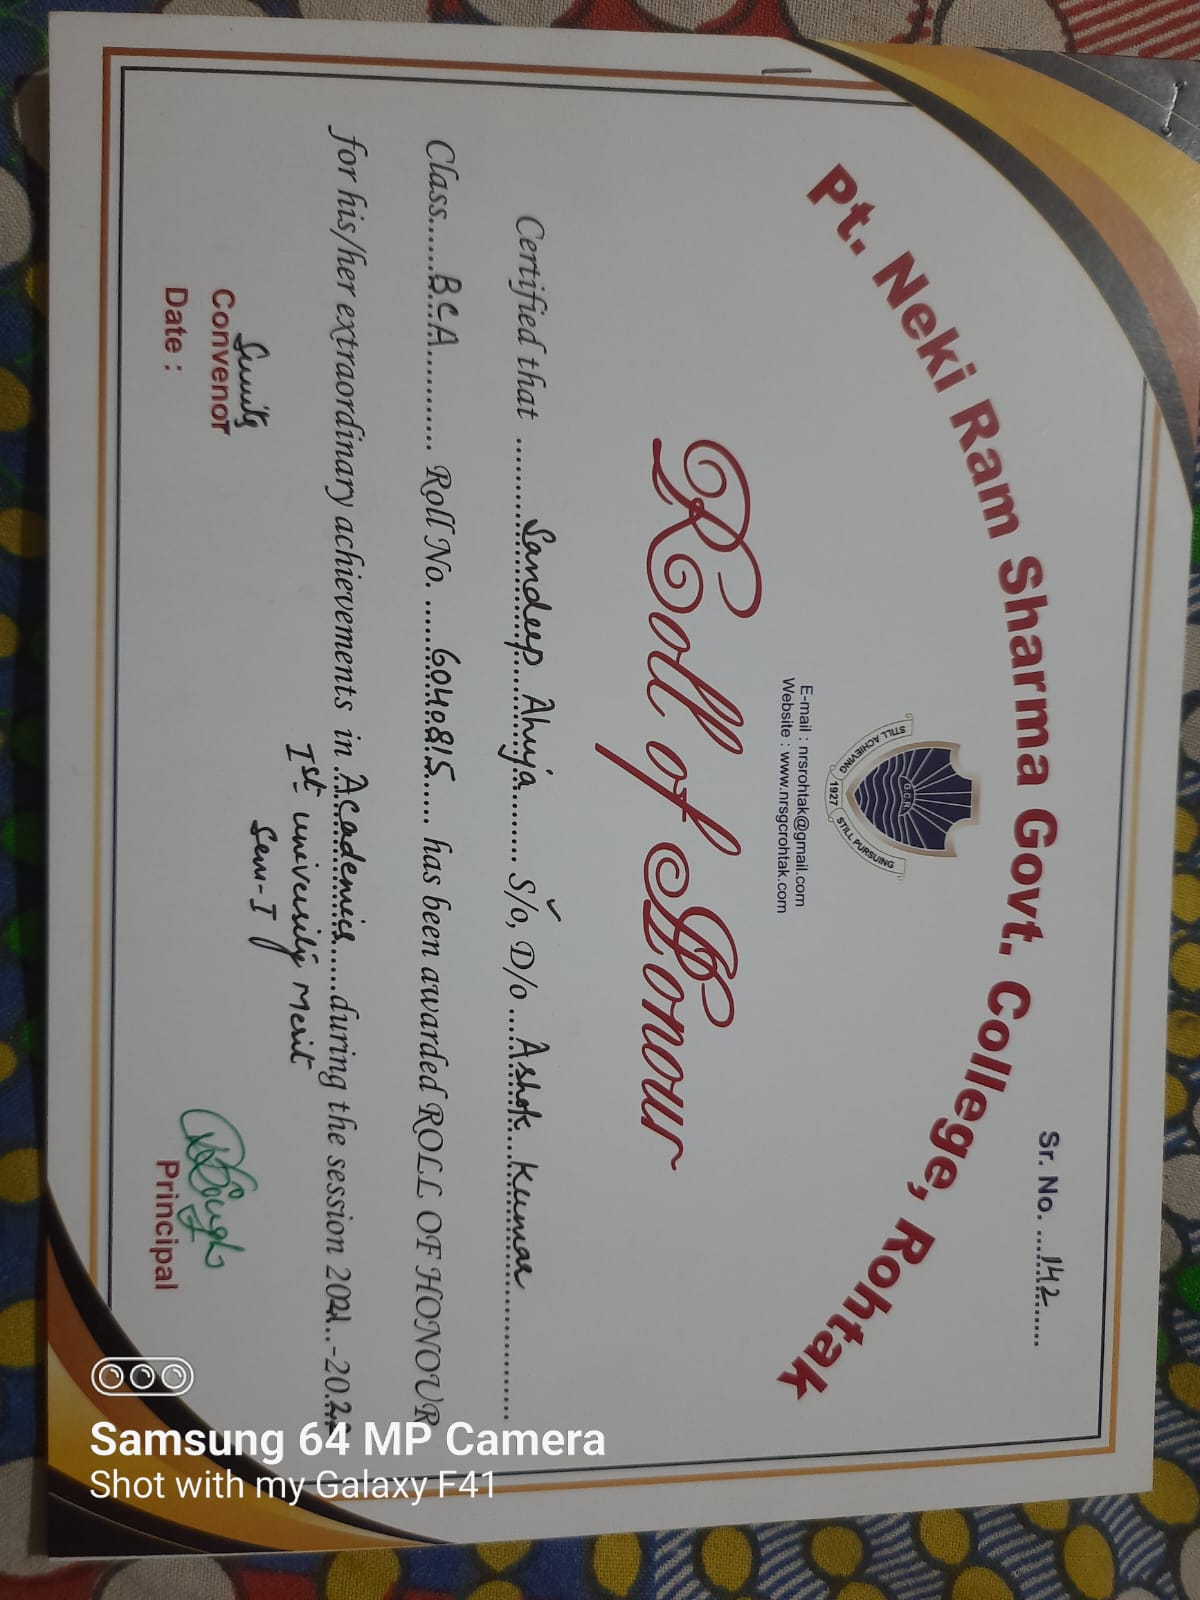 Sr. No. ....142....
Pt. Neki Ram Sharma Govt. College, Rohtak
G.C.R.
STILL ACHIEVING 1927 STILL PURSUING
E-mail : nrsrohtak@gmail.com
Website : www.nrsgcrohtak.com
Roll of Honour
Certified that ........Sandeep Ahuja........ S/o, D/o ....Ashok Kumar........
Class......BCA.......... Roll No. ......604815...... has been awarded ROLL OF HONOUR
for his/her extraordinary achievements in Academics......during the session 2021..-2022
Ist university Merit
Sem-I
Convenor
Principal
Date :
Samsung 64 MP Camera
Shot with my Galaxy F41